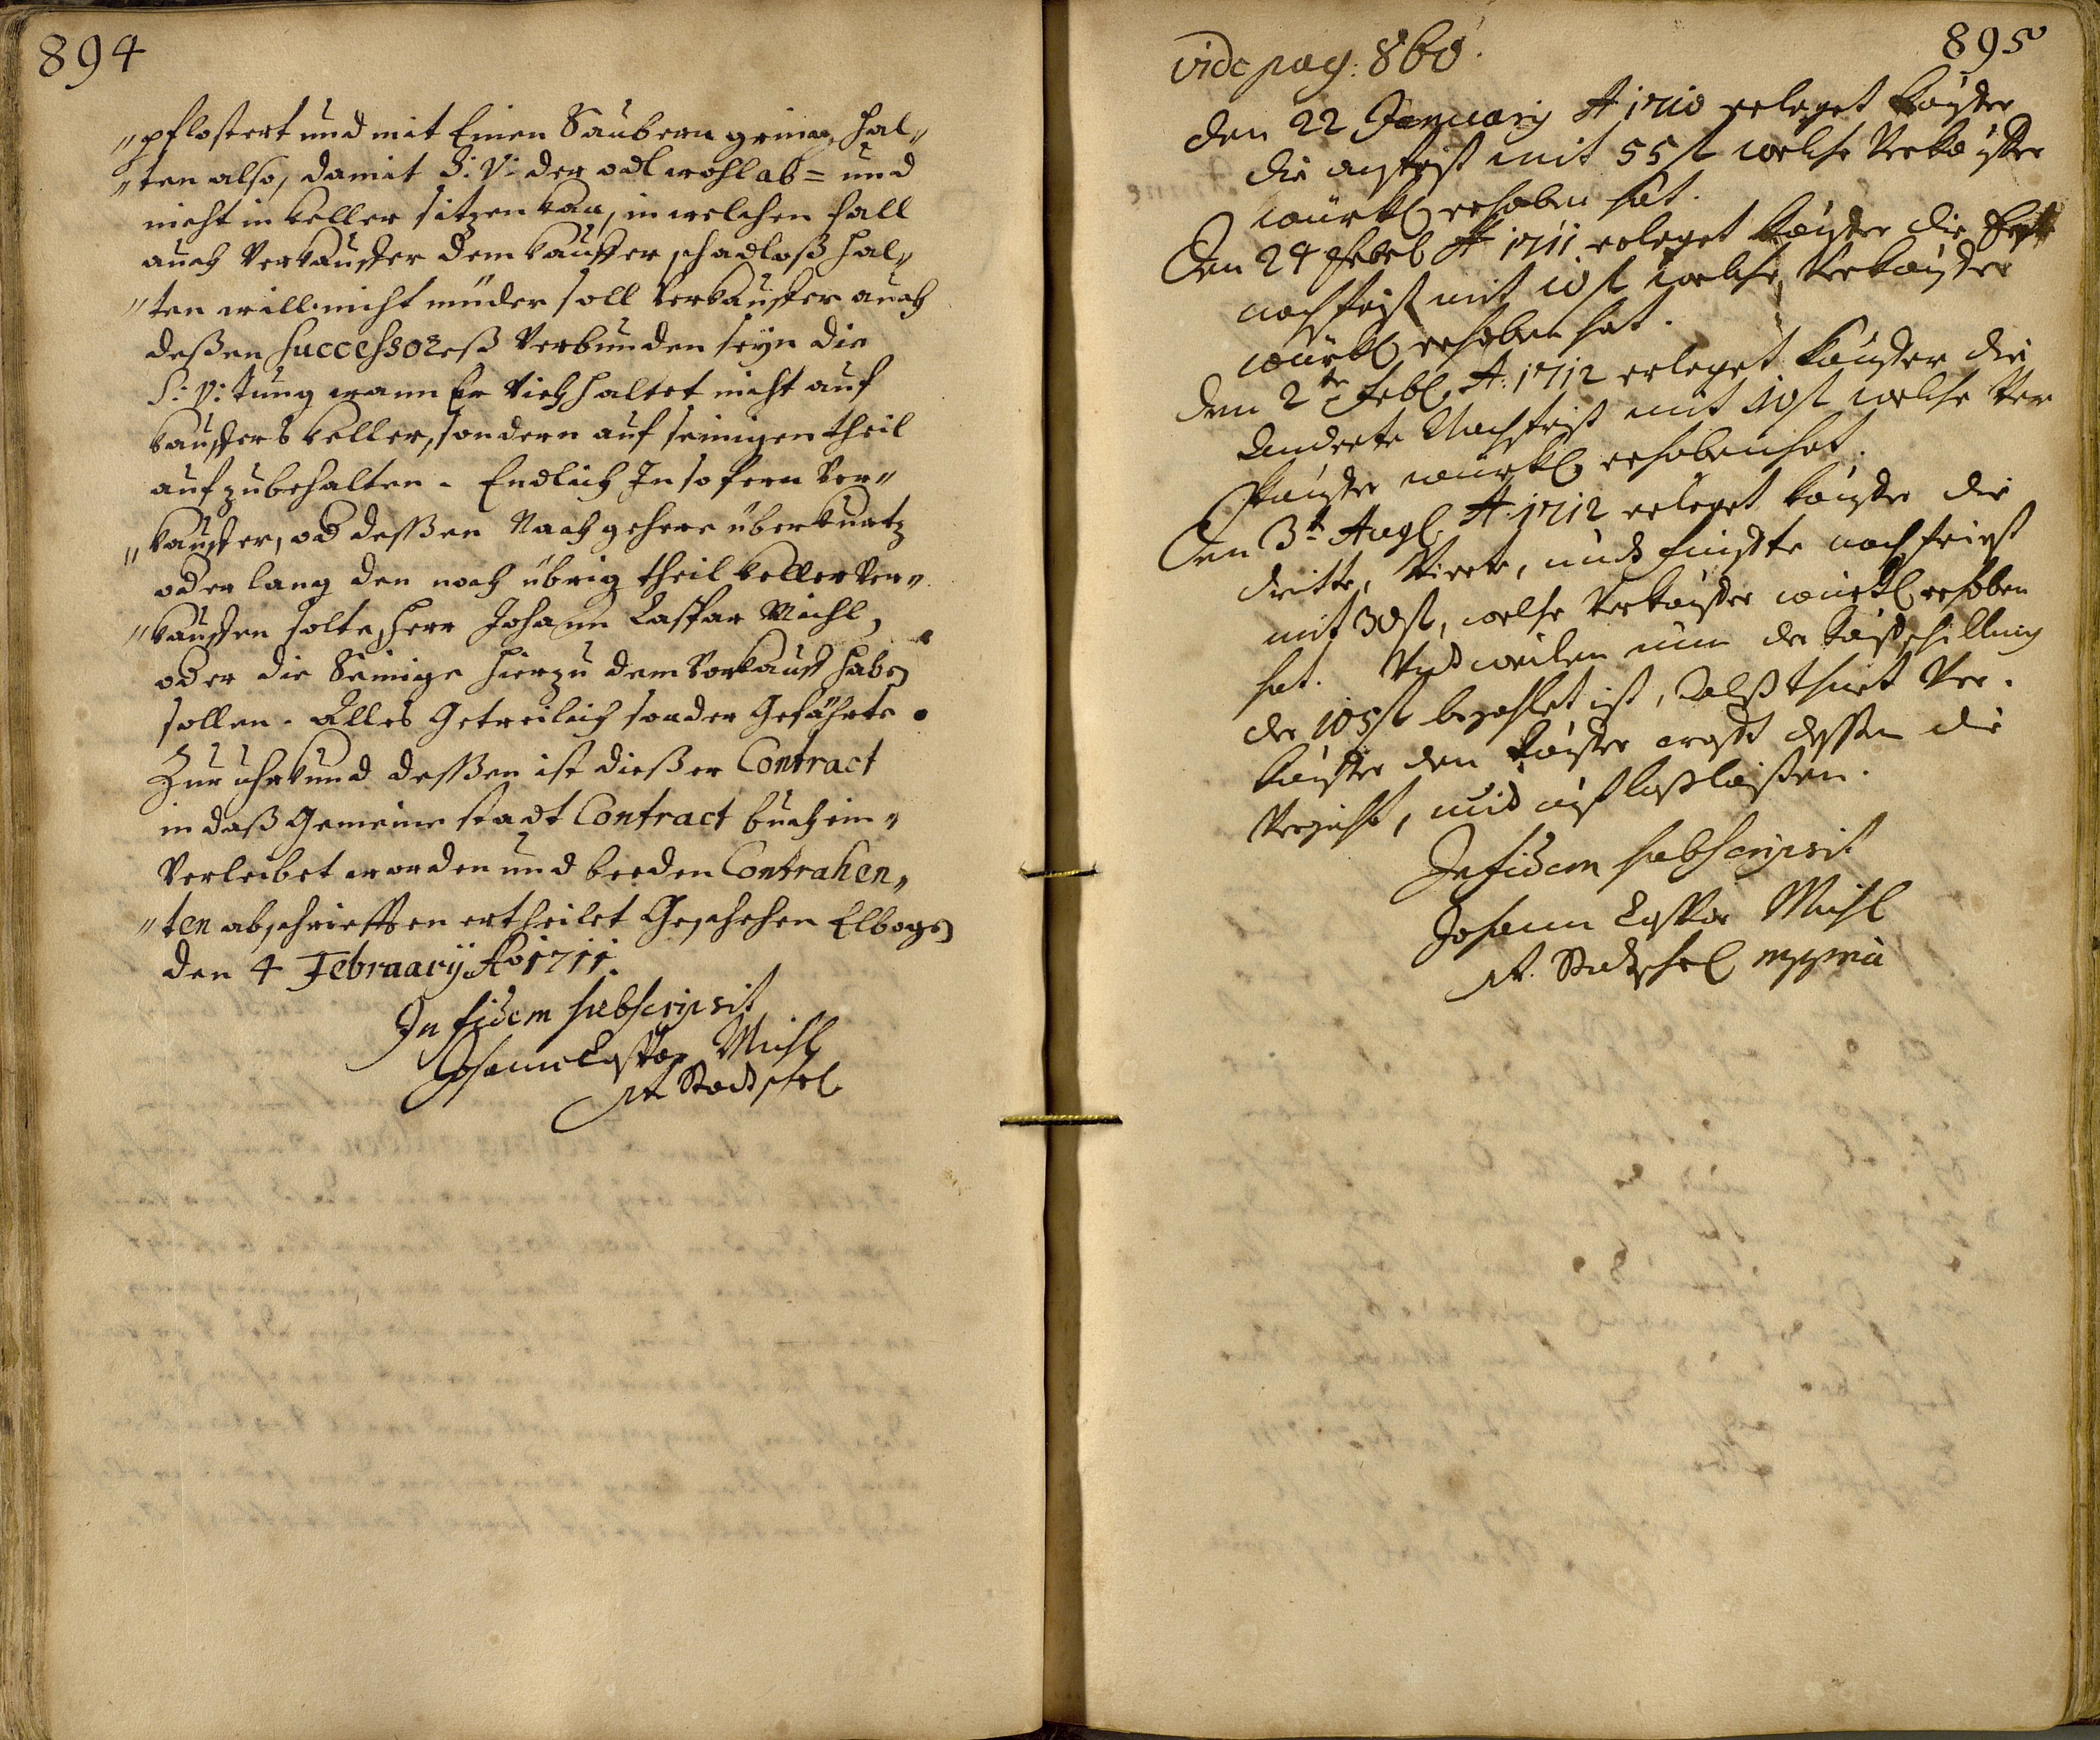 894
"pflostert und mit Einen Saubern grinnen hal"
"ten also, damit S: V: der odl wohl ab= und
nicht in keller sitzen kan, in welchen fall
auch Verkauffer dem kauffer schadloß hal"
"ten will. nicht minder soll Verkauffer auch
deßen successoreß Verbunden seyn die
S: V: tung wann Er Vieh haltet nicht auf
kauffers keller, sondern auf seinigen theil
aufzubehalten. Endlich In so fern Ver"
"kauffer, od deßen Nachgehere über kurtz
oder lang den noch übrig theil keller Ver"
"kauffen solte, Herr Johann Caspar Michl,
oder die Seinige hierzu dem Vorkauff haben
sollen. Alles Getreilich sonder Gefährte.
Zur uhrkund deßen ist dießer Contract
in daß Gemeine stadt Contract buch ein"
Verleibet worden und beeden Contrahen"
"ten abschriefften ertheilet Geschehen Elbogen
den 4 Februarij Ao 1711.
In fidem subscripsit
Johann Caspar Michl
Stadtschr
895
vide pag: 860.
den 22 Januarij A 1710 erleget kauffer
die angfrist mit 55 fl welche Verkauffer
würkl erhoben hat.
Den 24 Febr A 1711 erleget kauffer die Erste
nachfrist mit 10 fl welche Verkauffer
würkl erhoben hat.
den 2te Febr A: 1712 erleget kauffer die
anderte Nachfrist mit 10 fl welche Ver
kauffer würkl erhoben hat.
Den 3te Aug A 1712 erleget kauffer die
dritte, Vierte, und fünffte nachfrist
mit 30 fl, welche Verkauffer würkl erhoben
hat. Und weilen nun der kaufschilling
der 105 fl bezahlet ist, Alß thuet Ver"
kauffer den kauffer crafft deßen die
Verzicht, und auflaßlaißen.
In fidem subscripsit
Johann Caspar Michl
Stadtschr mppria